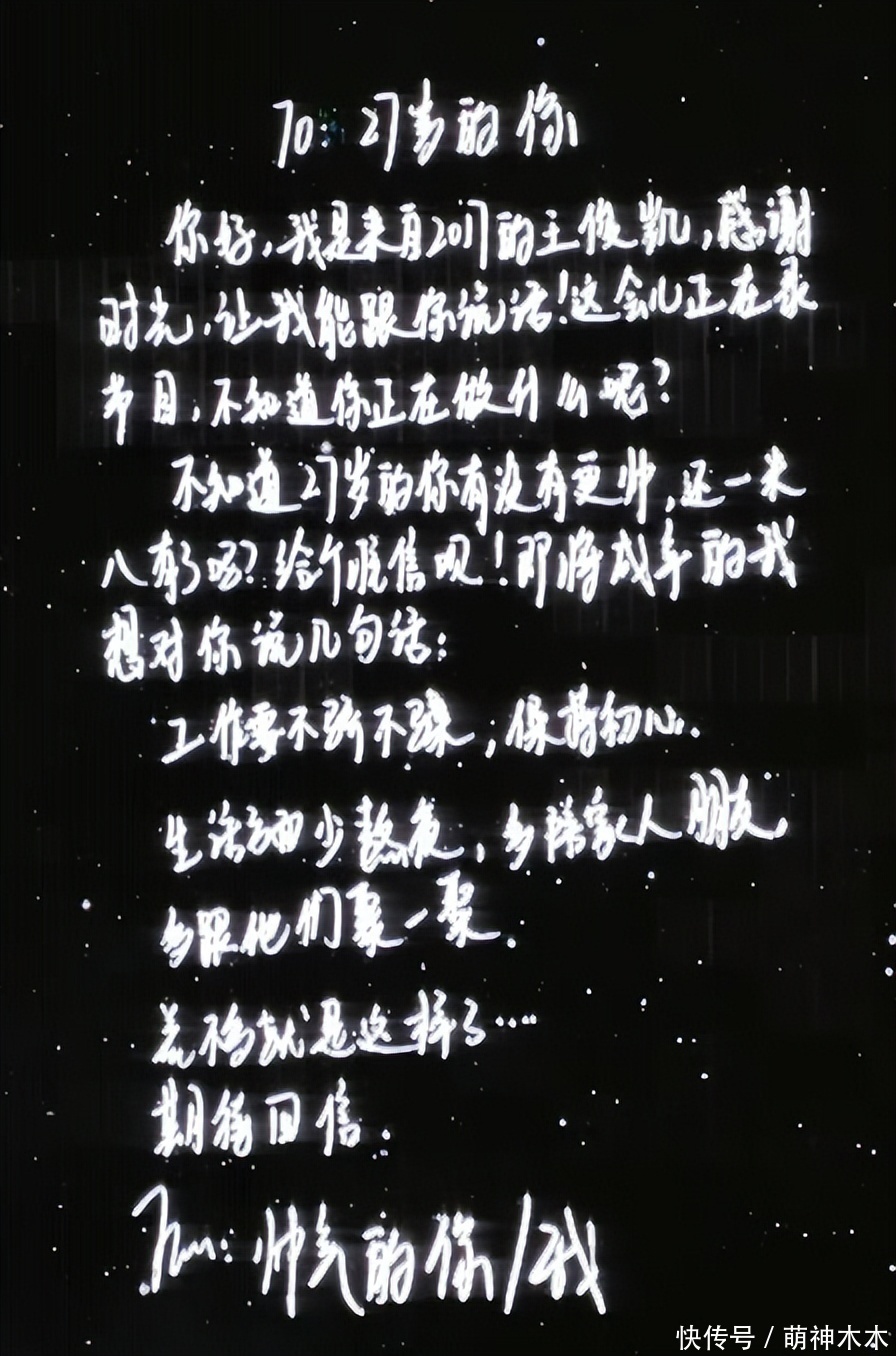 To: 27岁的你
你好,我是来自2017的王俊凯,感谢
时光,让我能跟你说话!这会儿正在录
节目,不知道你正在做什么呢?
不知道27岁的你有没有更帅,还一米
八有了吗?给个准信呗!即将成年的我
想对你说几句话:
工作要不骄不躁;保持初心.
生活细少熬夜,多陪家人朋友,
多跟他们聚一聚.
差不多就是这样了....
期待回信.
From:帅气的你/我
快传号/萌神木木